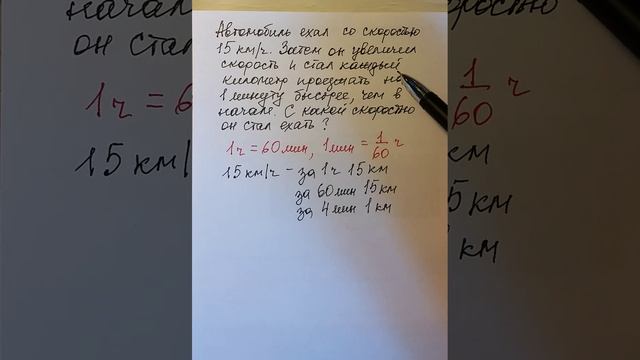 Автомобиль ехал со скоростью
15 км/ч. Затем он увеличил
скорость и стал каждый
километр проезжать на
1 минуту быстрее, чем в
начале. С какой скоростью
он стал ехать?
1ч = 60 мин, 1 мин = 1/60 ч
15 км/ч - за 1ч 15 км
за 60 мин 15 км
за 4 мин 1 км